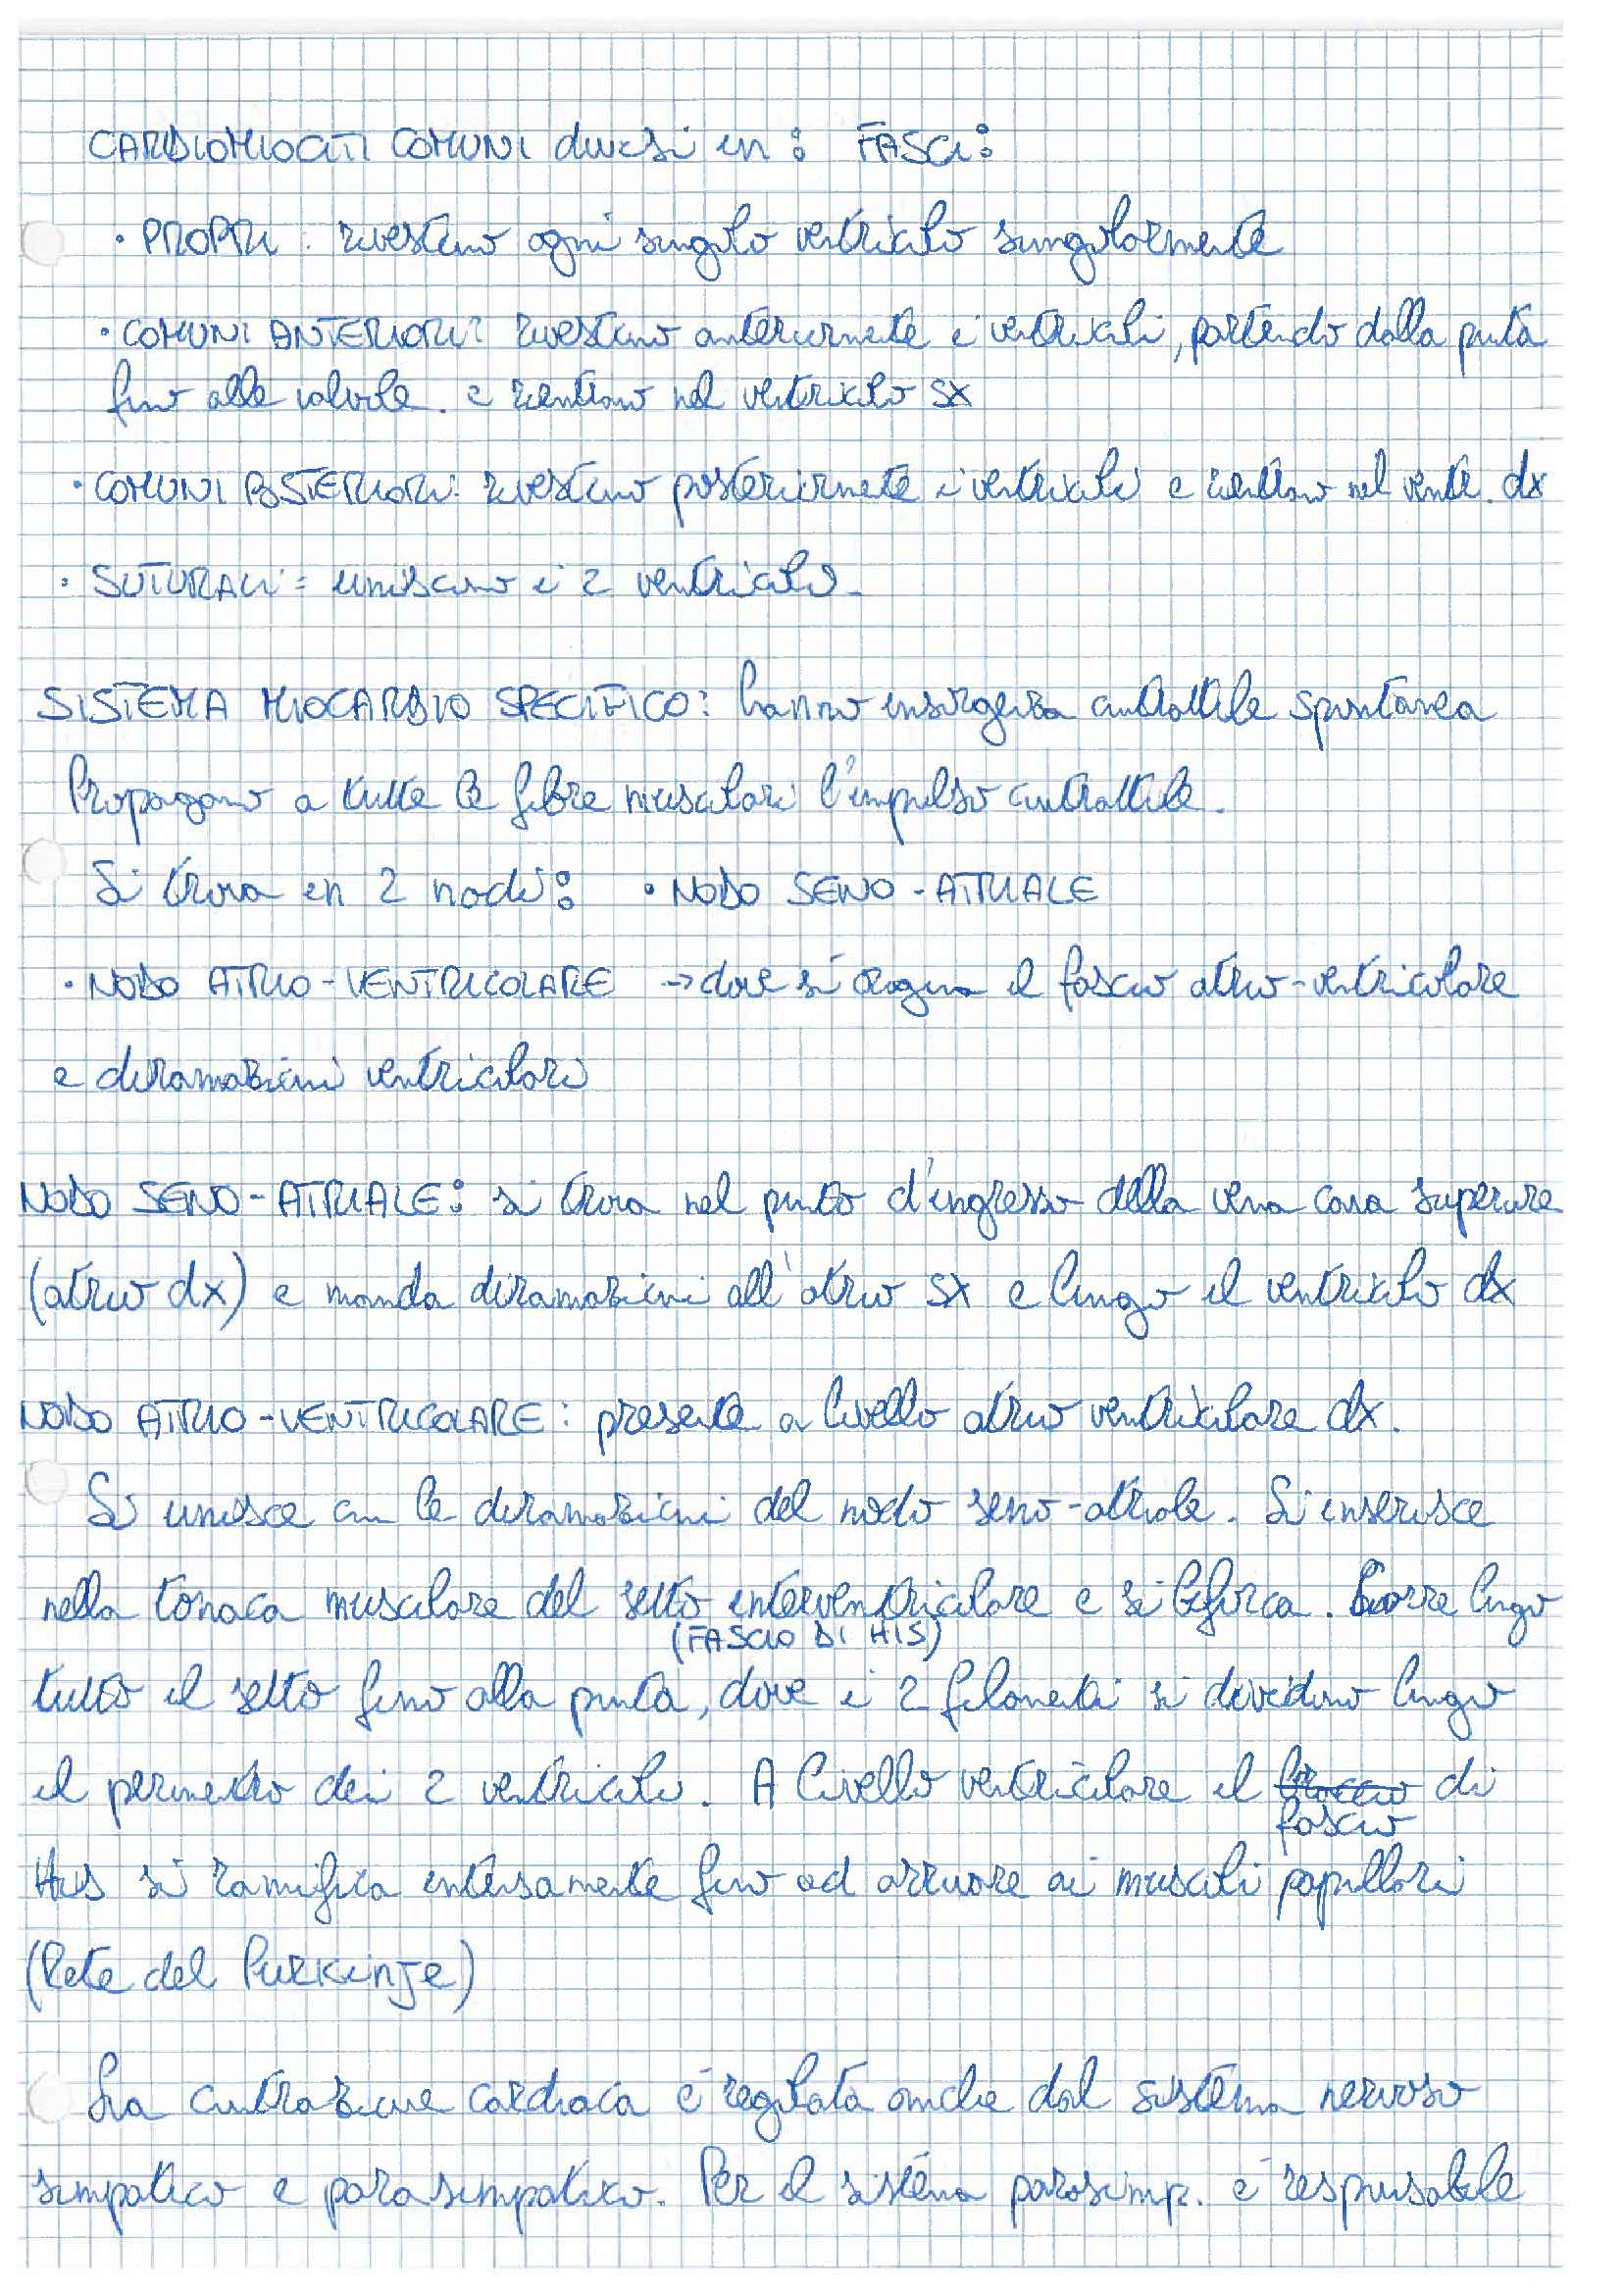 CARDIOMIOCITI COMUNI divisi in: FASCI:
• PROPRI: rivestono ogni singolo ventricolo singolarmente
• COMUNI ANTERIORI: rivestono anteriormente i ventricoli, partendo dalla punta
fino alle valvole. e rientrano nel ventricolo sx
• COMUNI POSTERIORI: rivestono posteriormente i ventricoli e rientrano nel ventr. dx
• SUTURALI: uniscono i 2 ventricoli.
SISTEMA MIOCARDIO SPECIFICO: hanno insorgenza contrattile spontanea
Propagano a tutte le fibre muscolari l'impulso contrattile.
Si trova in 2 nodi: • NODO SENO-ATRIALE
• NODO ATRIO-VENTRICOLARE → dove si origina il fascio atrio-ventricolare
e diramazioni ventricolari
NODO SENO-ATRIALE: si trova nel punto d'ingresso della vena cava superiore
(atrio dx) e manda diramazioni all'atrio sx e lungo il ventricolo dx
NODO ATRIO-VENTRICOLARE: presente a livello atrio ventricolare dx.
Si unisce con le diramazioni del nodo seno-atriale. Si inserisce
nella tonaca muscolare del setto interventricolare e si biforca. Scorre lungo
(FASCIO DI HIS)
tutto il setto fino alla punta, dove i 2 filamenti si dividono lungo
il perimetro dei 2 ventricoli. A livello ventricolare il braccio di
fascio
His si ramifica intensamente fino ad arrivare ai muscoli papillari
(Rete del Purkinje)
La contrazione cardiaca è regolata anche dal sistema nervoso
simpatico e parasimpatico. Per il sistema parasimp. è responsabile